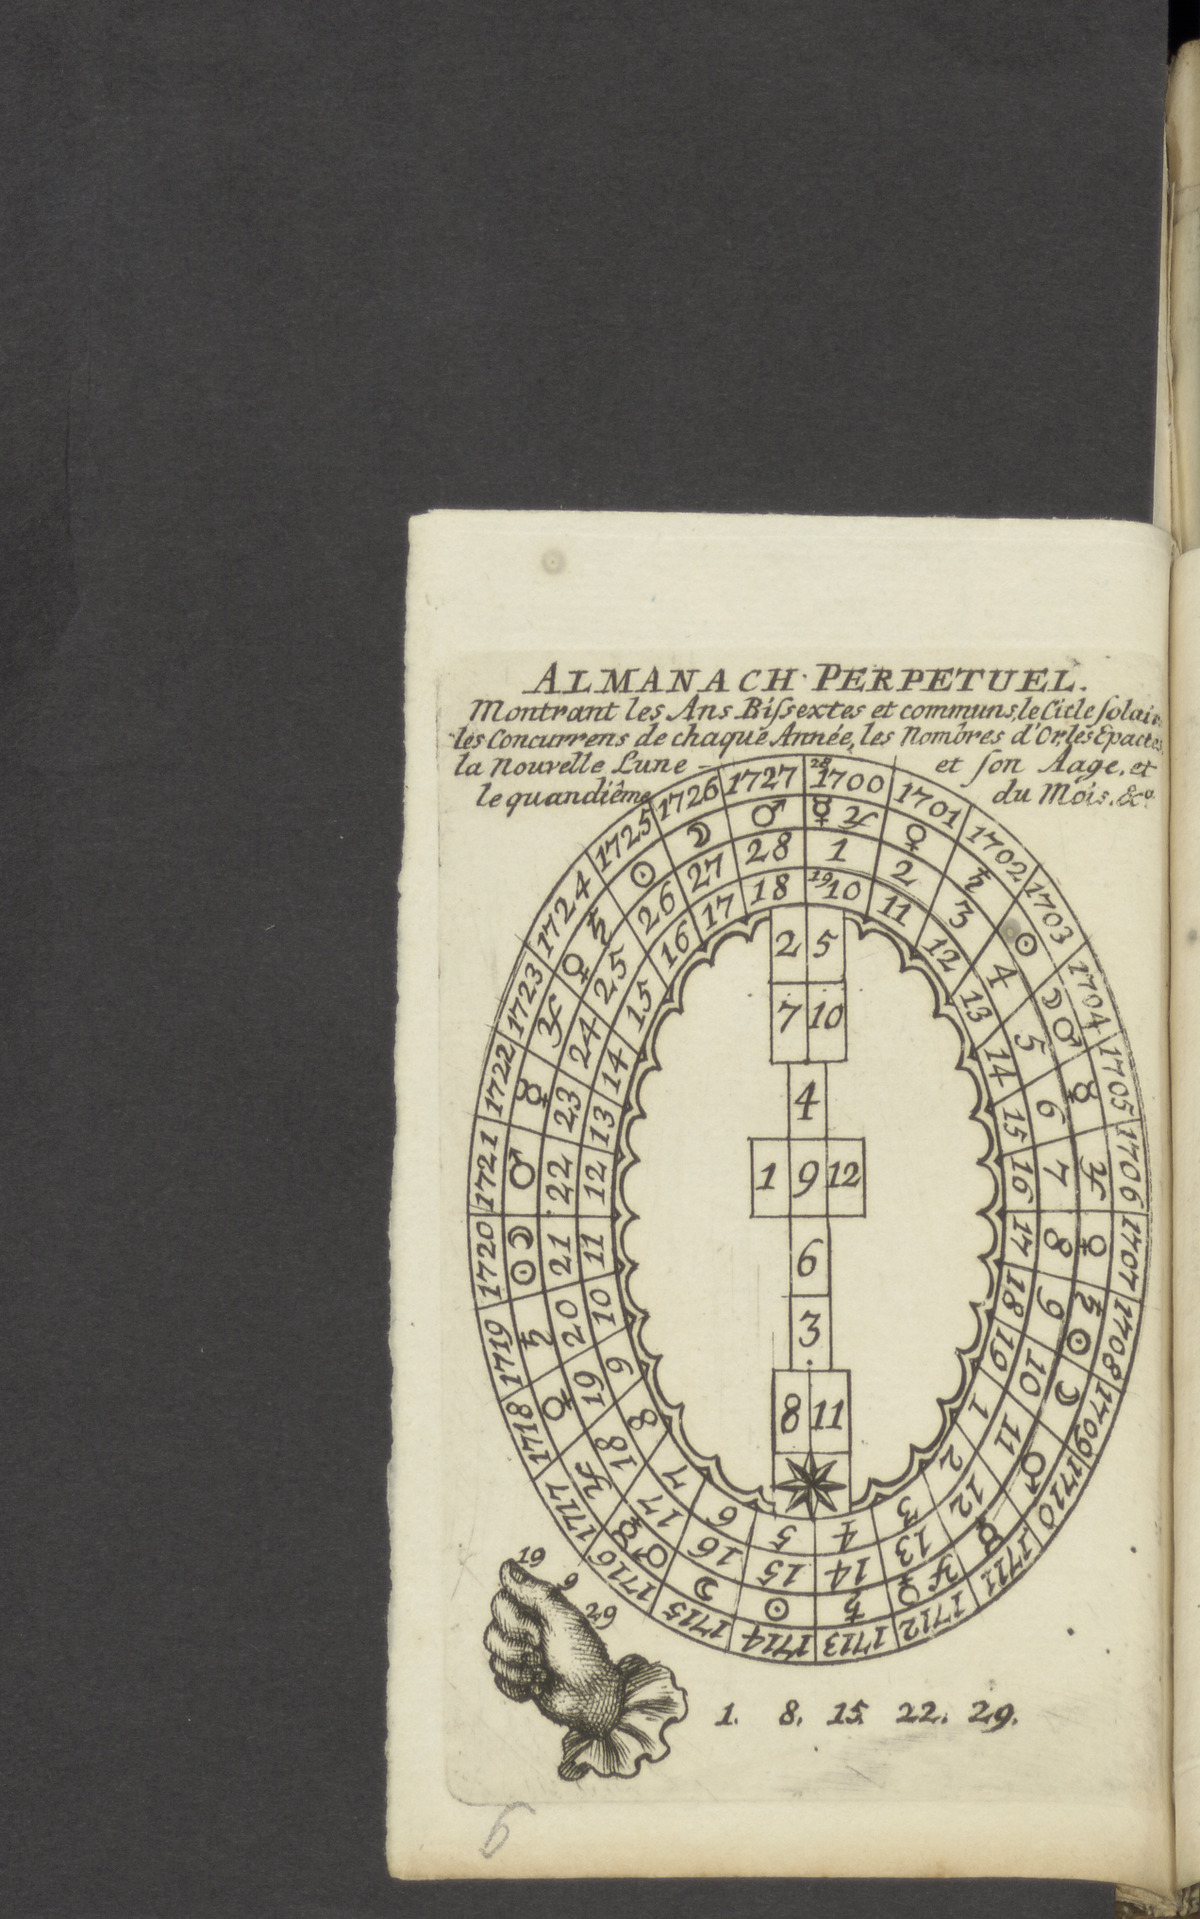 ALMANACH PERPETUEL.
Montrant les Ans Biſsextes et communs, le Cicle ſolair
les Concurrens de chaque Année, les Nombres d'Or, les Epactes
la Nouvelle Lune et ſon Aage, et
le quandiême du Mois, &c.
28 1700 1701 1702 1703 1704 1705 1706 1707 1708 1709 1710 1711 1712 1713 1714 1715 1716 1717 1718 1719 1720 1721 1722 1723 1724 1725 1726 1727
☿ ♃ ♀ ♄ ☉ ☽ ♂ ☿ ♃ ♀ ♄ ☉ ☽ ♂ ☿ ♃ ♀ ♄ ☉ ☽ ♂ ☿ ♃ ♀ ♄ ☉ ☽ ♂ ☿ ♃ ♀ ♄ ☉ ☽ ♂
1 2 3 4 5 6 7 8 9 10 11 12 13 14 15 16 17 18 19 20 21 22 23 24 25 26 27 28
19 10 11 12 13 14 15 16 17 18 19 1 2 3 4 5 6 7 8 9 10 11 12 13 14 15 16 17 18
2 5
7 10
4
1 9 12
6
3
8 11
19
9
29
1. 8. 15. 22. 29.
6